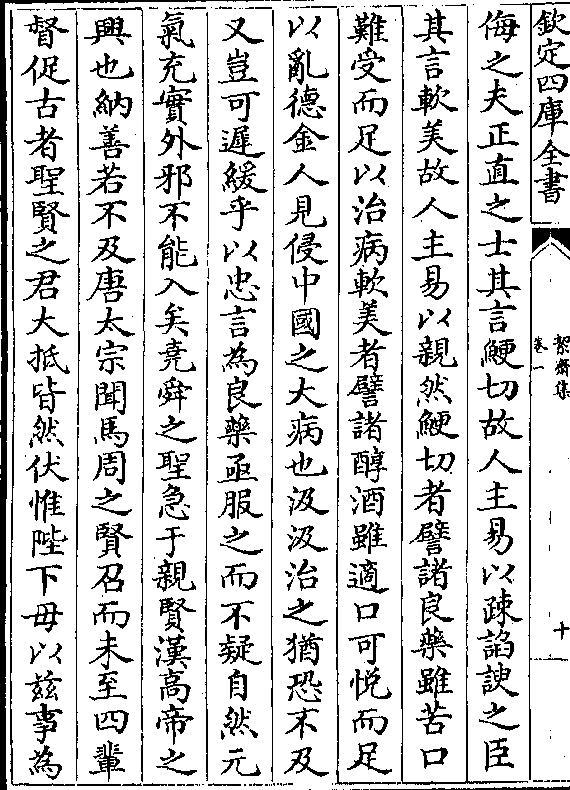 欽定四庫全書
絜齋集
卷一
十
侮之夫正直之士其言鯁切故人主易以疎諂諛之臣
其言軟美故人主易以親然鯁切者譬諸良藥雖苦口
難受而足以治病軟美者譬諸醇酒雖適口可悅而足
以亂德金人見侵中國之大病也汲汲治之猶恐不及
又豈可遲緩乎以忠言為良藥亟服之而不疑自然元
氣充實外邪不能入矣堯舜之聖急于親賢漢高帝之
興也納善若不及唐太宗聞馬周之賢召而未至四輩
督促古者聖賢之君大抵皆然伏惟陛下毋以兹事為